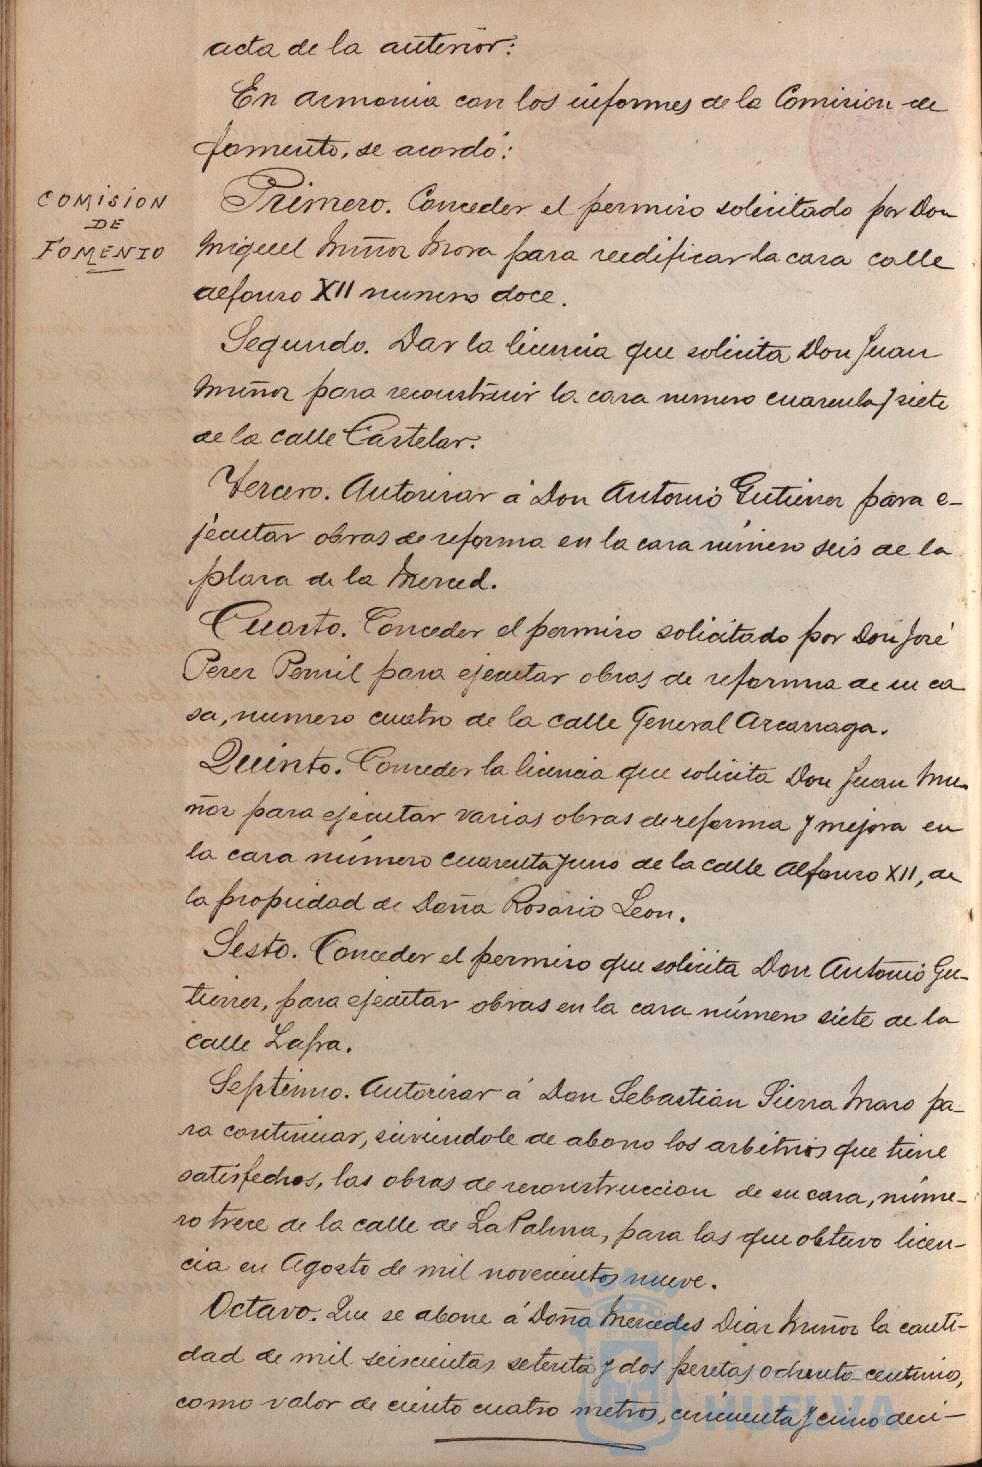 acta de la anterior:
En armonia con los informes de la Comision de
fomento, se acordó:
COMISION
DE
FOMENTO
Primero. Conceder el permiso solicitado por Don
Miguel Muñoz Mora para reedificar la casa calle
Alfonso XII numero doce.
Segundo. Dar la licencia que solicita Don Juan
Muñoz para reconstruir la casa numero cuarenta y siete
de la calle Castelar.
Tercero. Autorizar á Don Antonio Gutierrez para e-
jecutar obras de reforma en la casa número seis de la
plaza de la Merced.
Cuarto. Conceder el permiso solicitado por Don José
Perez Pernil para ejecutar obras de reforma de su ca
sa, numero cuatro de la calle General Azcarraga.
Quinto. Conceder la licencia que solicita Don Juan Mu-
ñoz para ejecutar varias obras de reforma y mejora en
la casa número cuarenta y uno de la calle Alfonso XII, de
la propiedad de Doña Rosario Leon.
Sesto. Conceder el permiso que solicita Don Antonio Gu-
tierrez, para ejecutar obras en la casa número siete de la
calle Zafra.
Septimo. Autorizar á Don Sebastián Sierra Mazo pa-
ra continuar, sirviendole de abono los arbitrios que tiene
satisfechos, las obras de reconstruccion de su casa, núme-
ro trece de la calle de La Palma, para las que obtuvo licen-
cia en Agosto de mil novecientos nueve.
Octavo. Que se abone á Doña Mercedes Diaz Muñoz la canti-
dad de mil seiscientas setenta y dos pesetas ochenta centimos,
como valor de ciento cuatro metros, cincuenta y cinco deci-
HUELVA